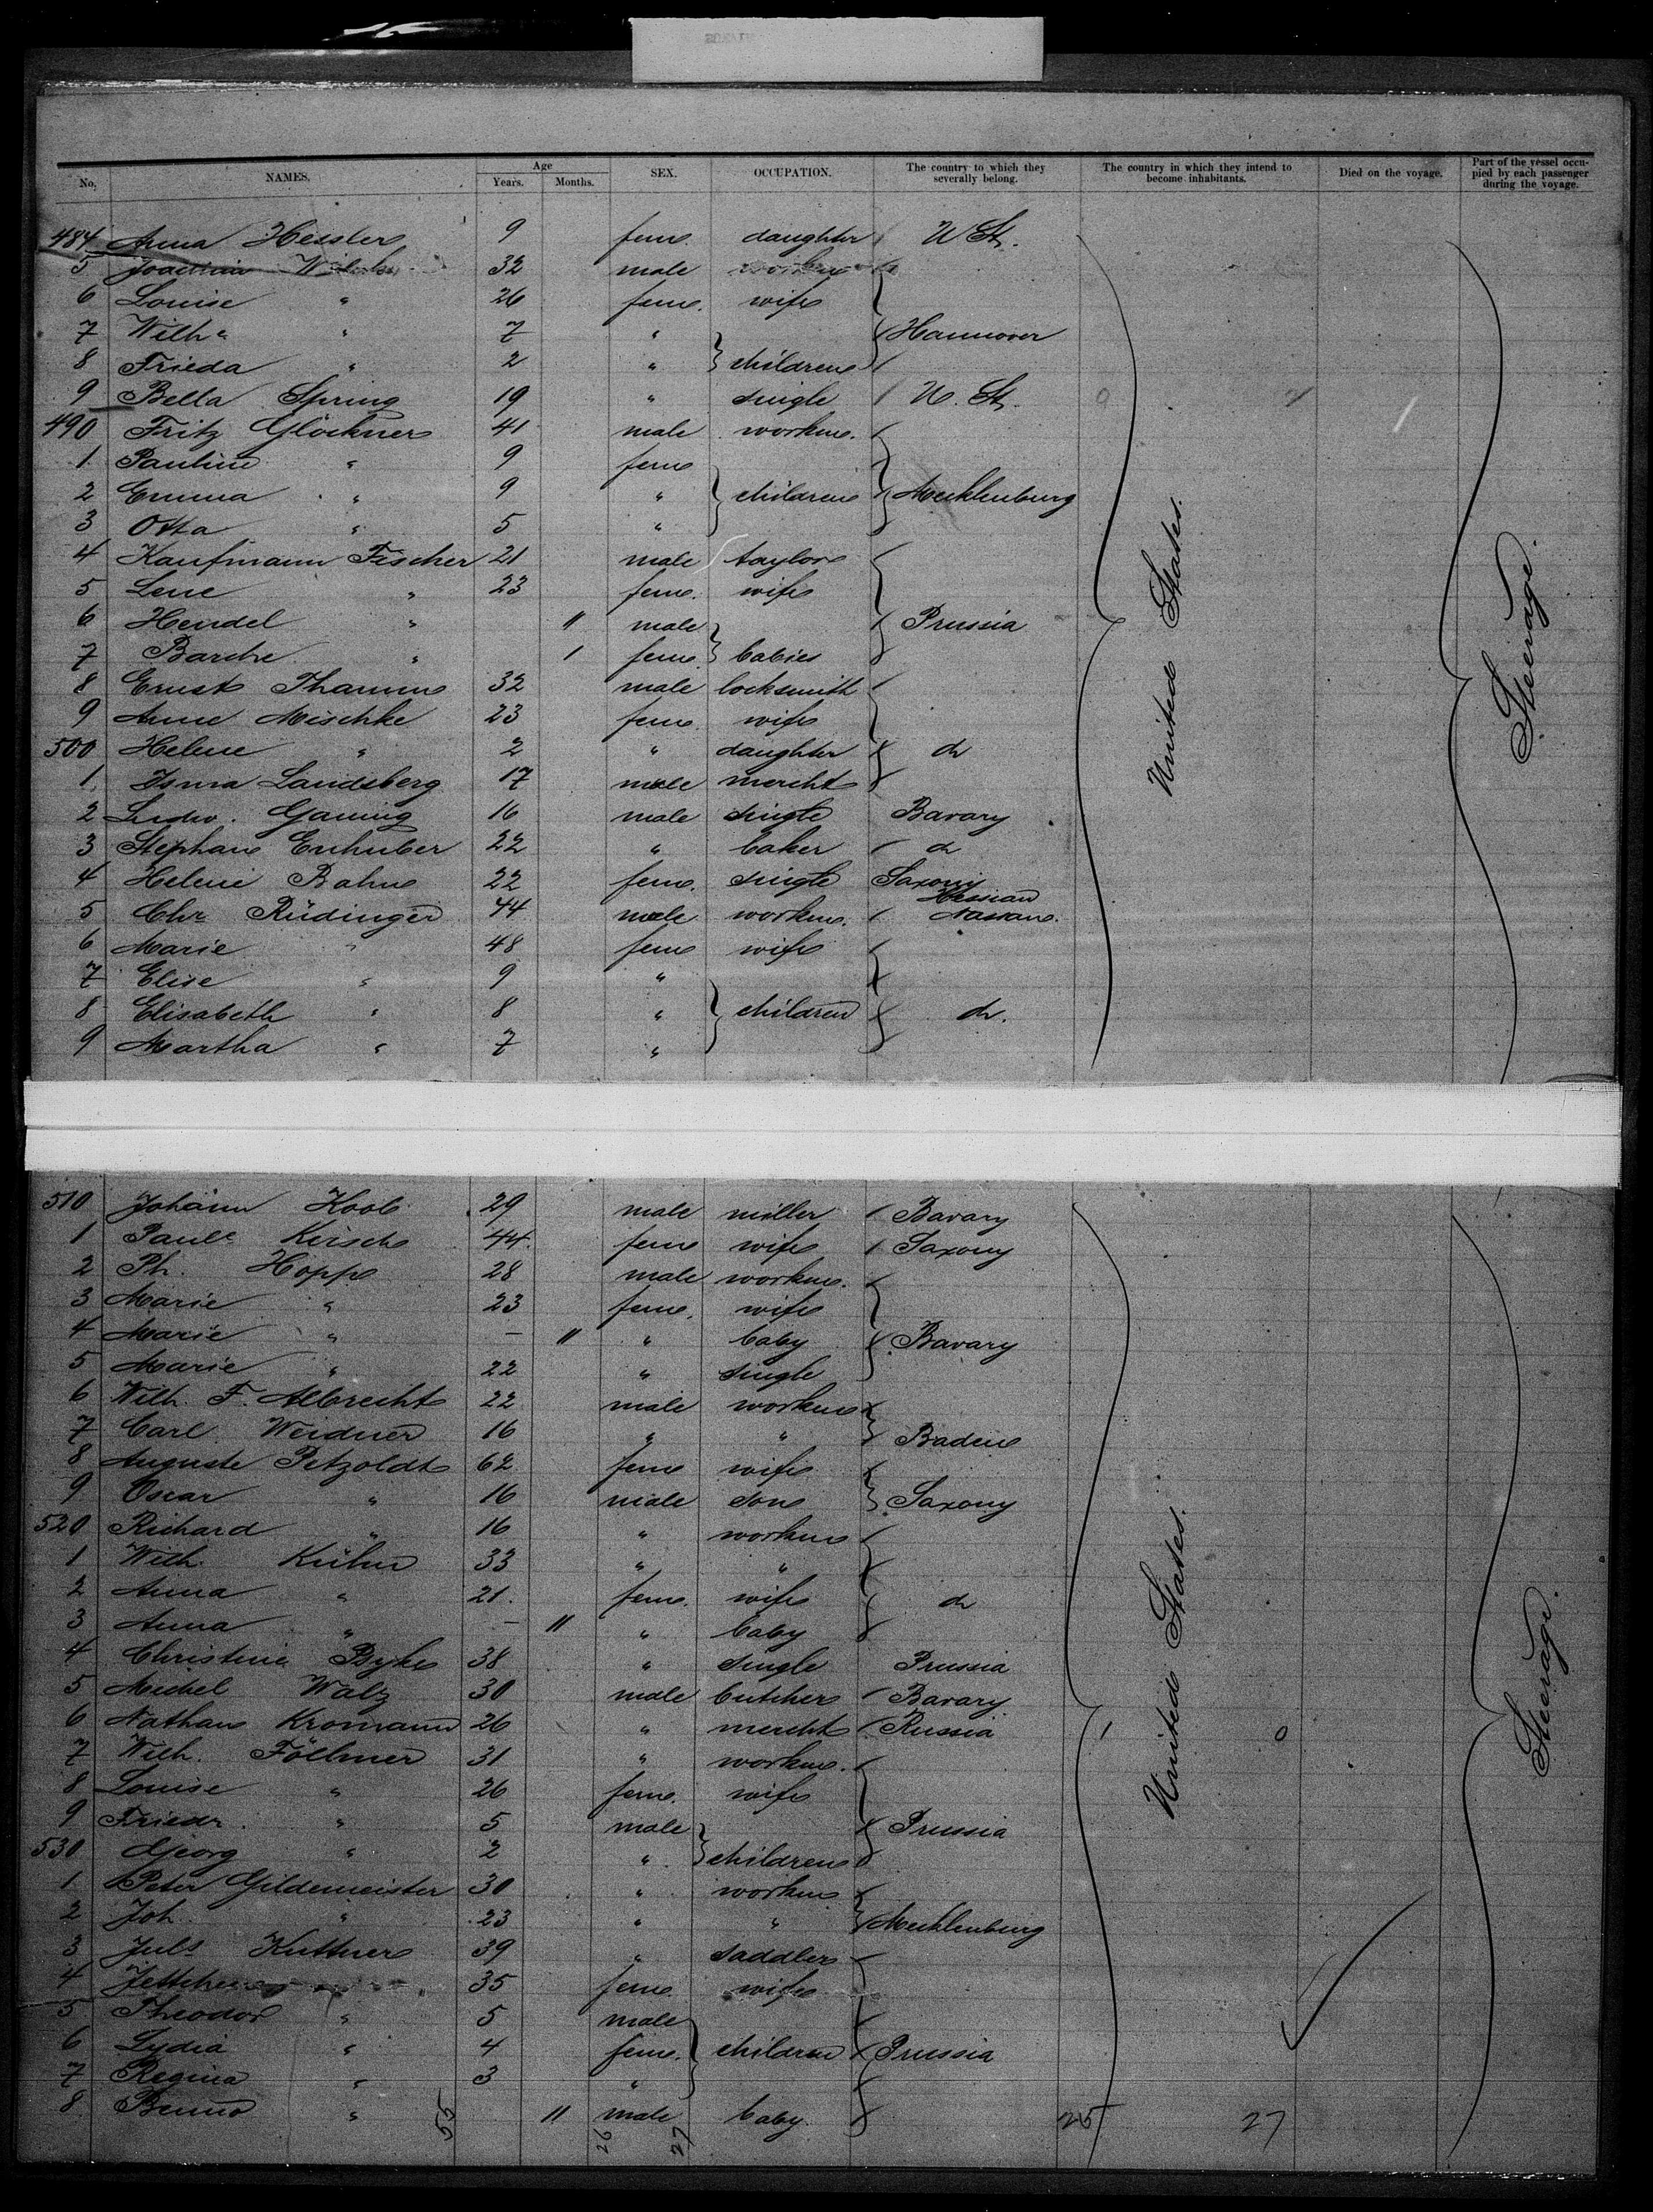 No. NAMES. Age Years. Months. SEX. OCCUPATION. The country to which they severally belong. The country in which they intend to become inhabitants. Died on the voyage. Part of the vessel occupied by each passenger during the voyage.
484 Anna Hessler 9 fem. daughter U St.
5 32 male
6 Louise " 26 fem. wife
7 Wilh. " 7 " Hannover
8 Frieda " 2 " children
9 Bella Spring 19 " single U. St.
490 Fritz Glöckner 41 male workm.
1 Pauline " 9 fem
2 Emma " 9 " children Mecklenburg
3 Otta " 5 "
4 Kaufmann Fischer 21 male taylor
5 Lene " 23 fem. wife
6 Hendel " 11 male Prussia
7 Barche " 1 fem. babies
8 Ernst Thamm 32 male locksmith
9 Anne Mischke 23 fem. wife
500 Helene " 2 " daughter do
1 Landsberg 17 male mercht
2 Ludw. 16 male single Bavary
3 Stephan Enhuber 22 " baker do
4 Helene Bahn 22 fem. single Saxony
5 Chr Rüdinger 44 male workm. Hessian Nassau.
6 Marie " 48 fem wife
7 Elise " 9 "
8 Elisabeth " 8 " children do.
9 Martha " 7 "
United States.
Steerage.
510 Johann Koob 29 male miller Bavary
1 Paule Kirsch 44. fem wife Saxony
2 Ph. Hopp 28 male workm.
3 Marie " 23 fem. wife
4 Marie " – 11 " baby Bavary
5 Marie " 22 " single
6 Wilh. F. Albrecht 22 male workm
7 Carl Weidner 16 " " Baden
8 Auguste Petzoldt 62 fem wife
9 Oscar " 16 male son Saxony
520 Richard " 16 " workm
1 Wilh. Kühn 33 " "
2 Anna " 21. fem. wife do
3 Anna " – 11 " baby
4 Christine Byke 38 " single Prussia
5 Michel Walz 30 male butcher Bavary
6 Nathan Kromann 26 " mercht Russia 1 0
7 Wilh. Föllmer 31 " workm.
8 Louise " 26 fem. wife
9 Friedr. " 5 male Prussia
530 Georg " 2 " children
1 Peter Gildemeister 30 " workm
2 Joh. " 23 " " Mecklenburg
3 Juls Kuttner 39 " saddler
4 Jettchen " 35 fem. wife
5 Theodor " 5 male
6 Lydia " 4 fem. children Prussia
7 Regina " 3 "
8 Benno " 11 male baby.
United States.
Steerage.
55 26 27 25 27